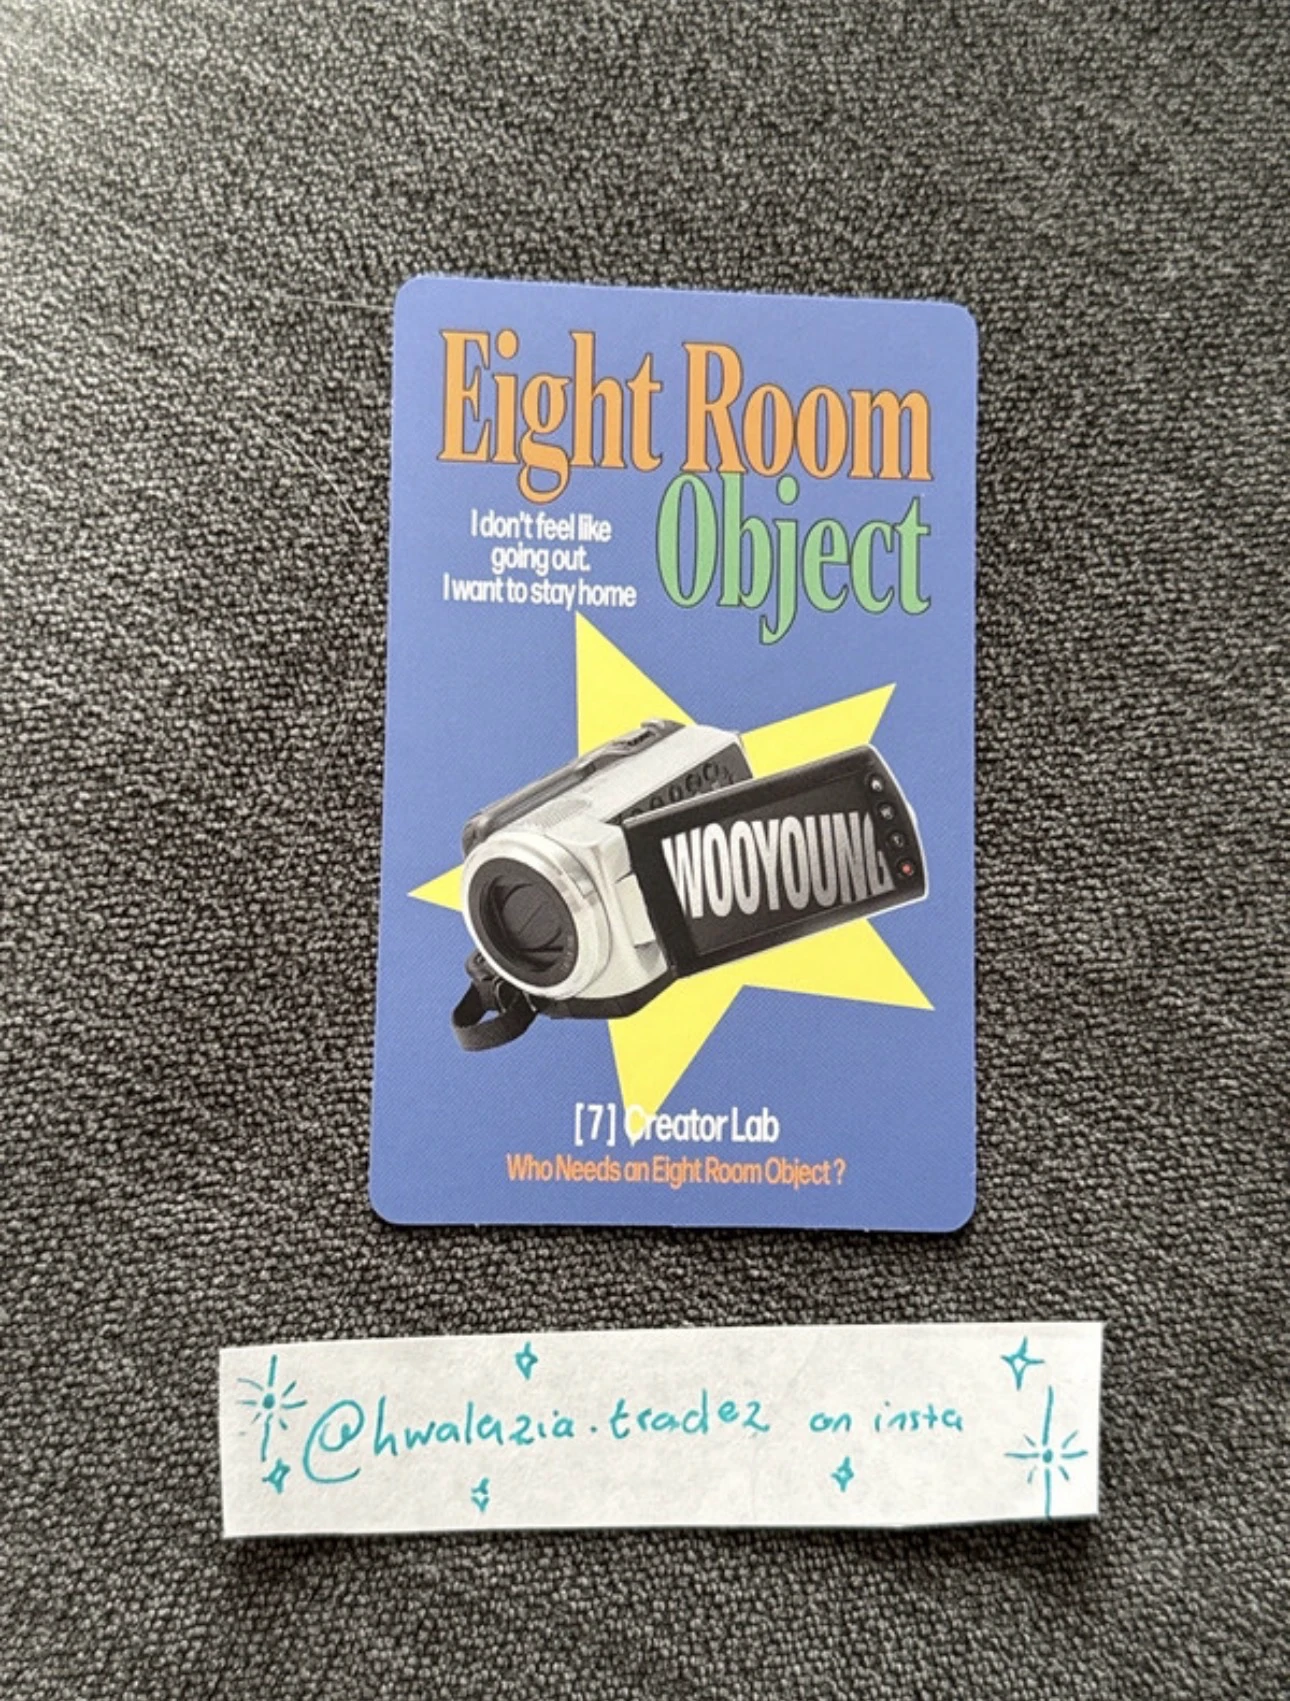 Eight Room
Object
I don't feel like
going out.
I want to stay home
WOOYOUNG
[7] Creator Lab
Who Needs an Eight Room Object?
@hwalazia.tradez on insta